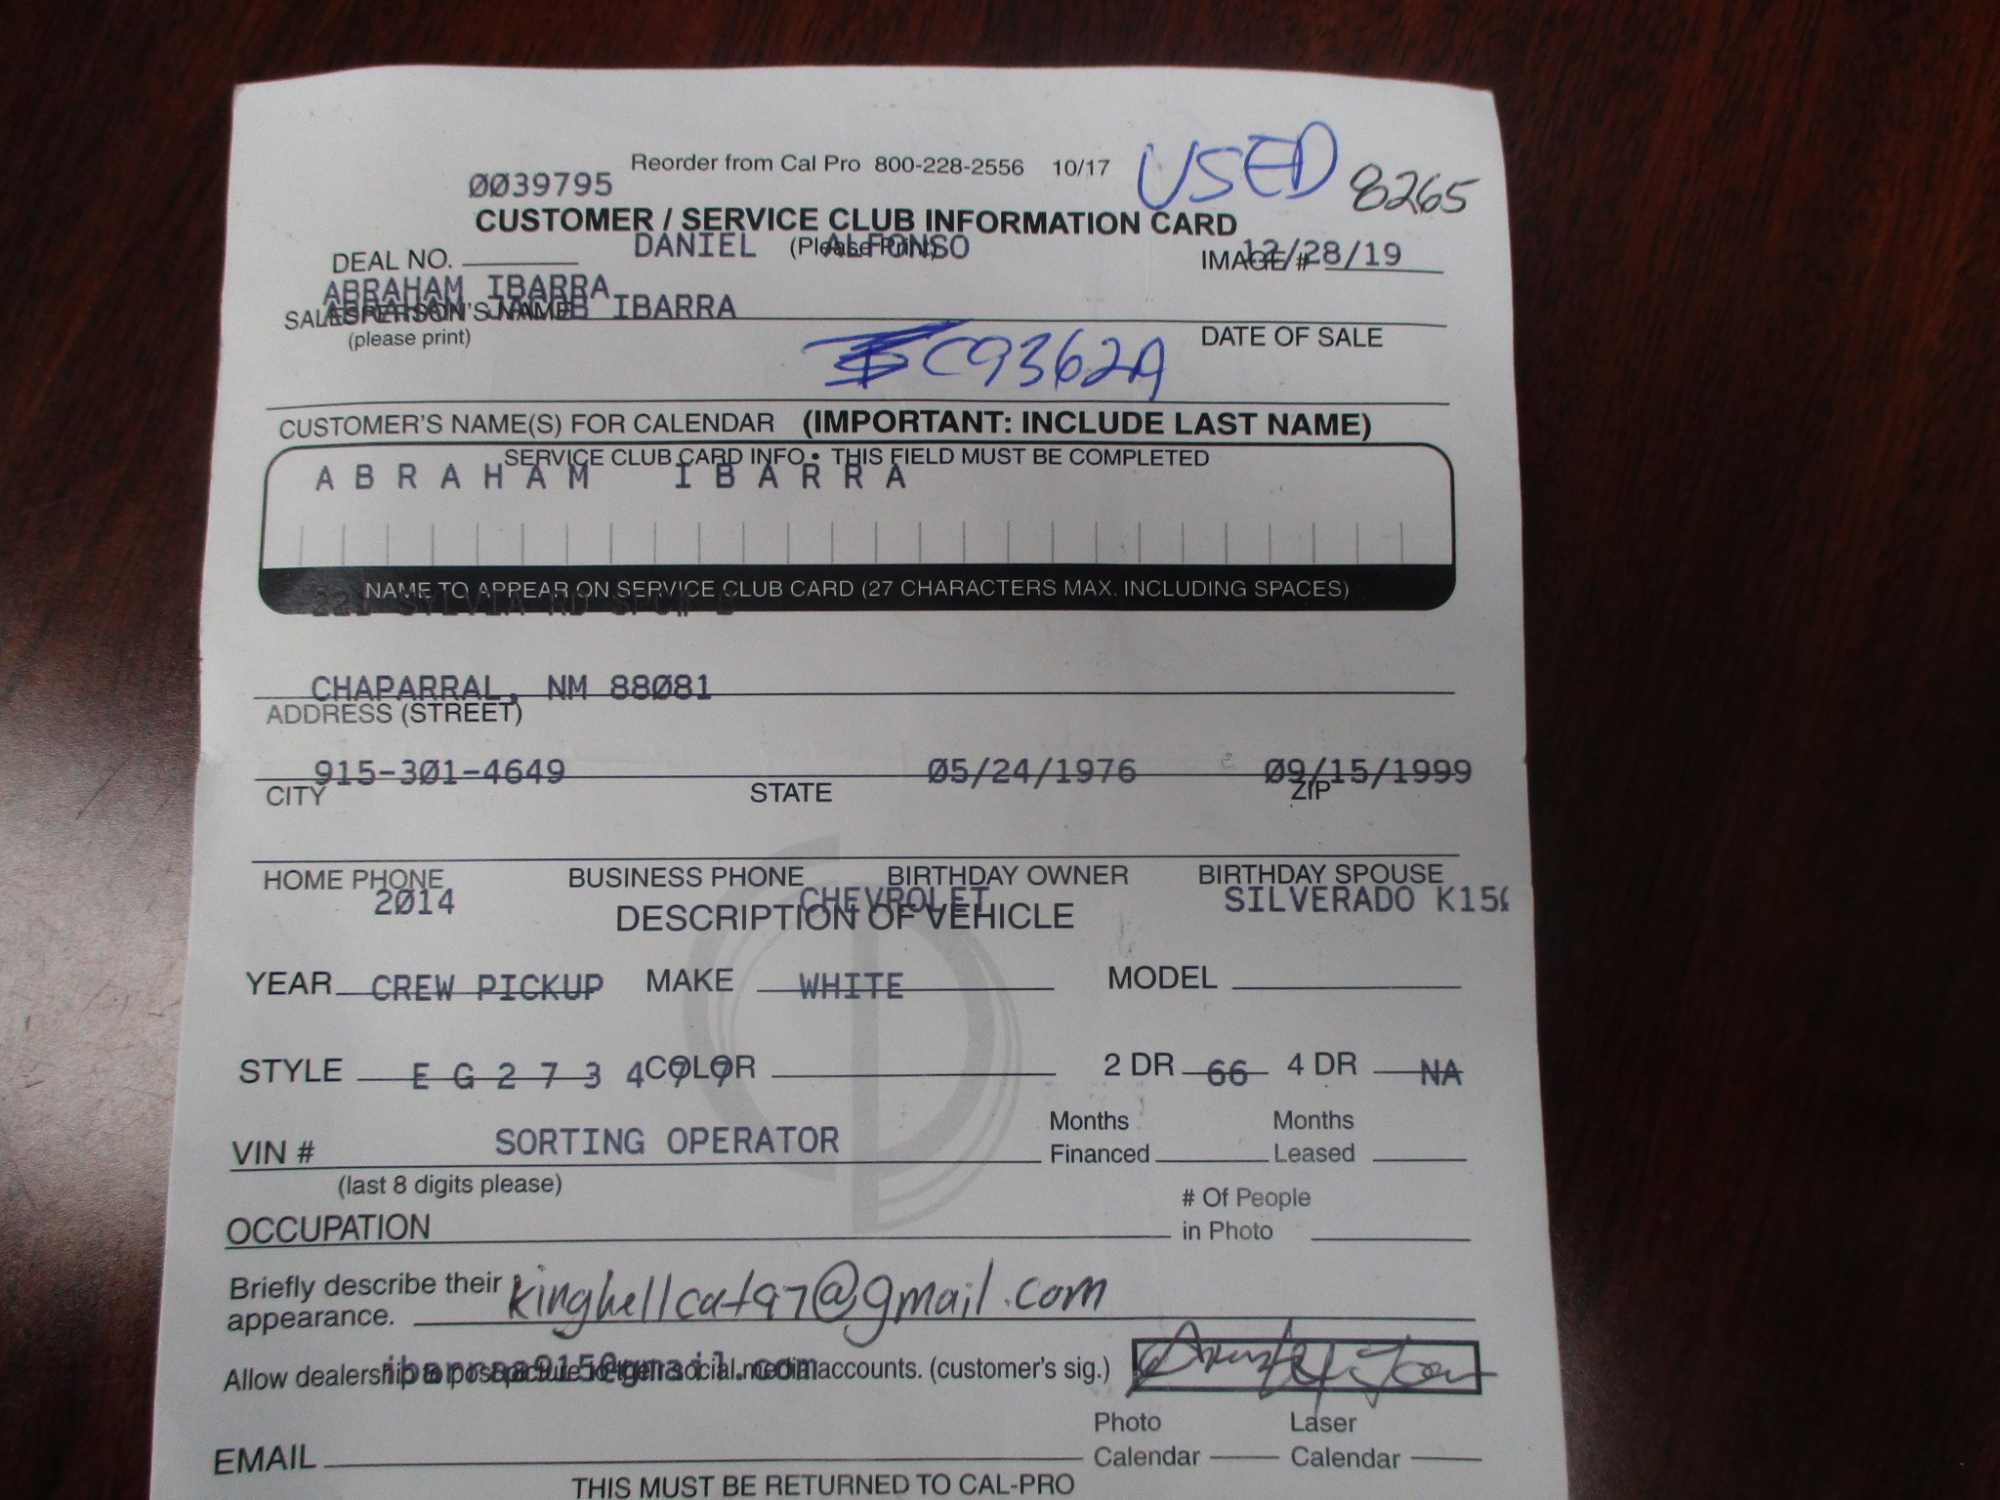 Reorder from Cal Pro 800-228-2556 10/17 USED 8265
0039795
CUSTOMER / SERVICE CLUB INFORMATION CARD
DANIEL ALFONSO (Please Print)
DEAL NO. IMAGE # 12/28/19
ABRAHAM IBARRA
IBARRA
SALESPERSON'S NAME
(please print) DATE OF SALE
C9362A
CUSTOMER'S NAME(S) FOR CALENDAR (IMPORTANT: INCLUDE LAST NAME)
SERVICE CLUB CARD INFO • THIS FIELD MUST BE COMPLETED
ABRAHAM IBARRA
NAME TO APPEAR ON SERVICE CLUB CARD (27 CHARACTERS MAX. INCLUDING SPACES)
SYLVIA RD
CHAPARRAL, NM 88081
ADDRESS (STREET)
915-301-4649 05/24/1976 09/15/1999
CITY STATE ZIP
HOME PHONE BUSINESS PHONE BIRTHDAY OWNER BIRTHDAY SPOUSE
2014 CHEVROLET SILVERADO
DESCRIPTION OF VEHICLE
YEAR CREW PICKUP MAKE WHITE MODEL
STYLE EG273499 COLOR 2 DR 66 4 DR NA
VIN # SORTING OPERATOR Months Financed Months Leased
(last 8 digits please)
OCCUPATION # Of People in Photo
Briefly describe their appearance. kinghellcat97@gmail.com
Allow dealership to post picture to their social media accounts. (customer's sig.)
Photo Calendar Laser Calendar
EMAIL
THIS MUST BE RETURNED TO CAL-PRO